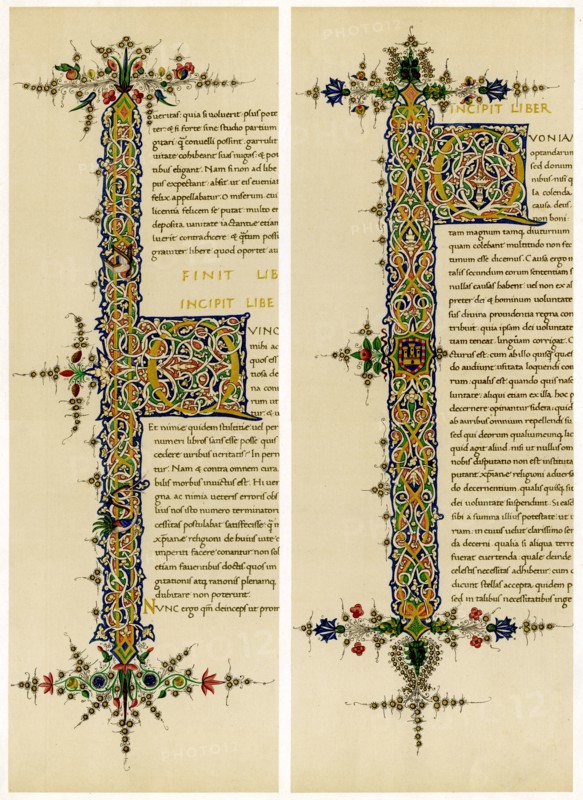 ueritas: quia si uoluerit plus pote
ter: & si forte sine studio partium
gitari; q̃ conuelli possint garrulit
uitate cohibeant suas nugas; & pos
tibus eligant. Nam si non ad libe
pus expectant: absit ut eis eueniat
felix appellabatur. O miserum cui
licentia felicem se putat multo er
deposita uanitate iactantiæ etian
luerit contradicere: & q̃tum possi
grauiter: libere quod oportet au
FINIT LIB
INCIPIT LIBE
VINC
mihi ac
quos ess
tiosa de
na con
rum ut
tur: & u
Et nimie quidem stultitie uel per
numeri libros satis esse posse: quis
cedere uiribus ueritatis? In pern
tur. Nam & contra omnem cura
bilis morbus inuictus est. Hi uer
gna ac nimia ueteris erroris obs
lius nos isto numero terminatoru
cessitas postulabat satisfecisse: q̃ n
xp̃iane religioni de huius uite c
imperiti facere conantur: non sol
etiam fauentibus doctis: quos in
gitationis atq. rationis plenariq.
dubitare non poterunt.
NVNC ergo qm̃ deinceps ut prom
INCIPIT LIBER
QVONIAM
optandarum
sed donum
nibus: nisi q
la colenda.
causa. deus.
non boni
tam magnum tamq. diuturnum
quam colebant multitudo non fec
timum esse dicemus. Causa ergo m
talis: secundum eorum sententiam s
nullas causas habent: uel non ex al
preter dei & hominum uoluntate
sus diuina prouidentia regna con
tribuit: quia ipsam dei uoluntate
tiam teneat. linguam corrigat. C
cturus est. cum ab illo quisq. que
do audiunt: usitata loquendi con
rum. qualis est: quando quis nasc
luntate: aliqui etiam ex illa. hoc p
decernere opinantur sidera: quid
ab auribus omnium repellendi su
sed qui deorum qualiumcunq. lic
quid agit aliud. nisi ut nullus om
nobis disputatio non est instituta
putant. xp̃iane religioni aduersa
do decernentium. qualis quisq. sit
dei uoluntate suspendunt. Si easd
sibi a summa illius potestate: ut u
rum: in cuius uelut clarissimo ser
da decerni: qualia si aliqua terre
fuerat euertenda. quale deinde
celestis necessitas adhibetur: cum c
dicunt stellas accepta. quidem p
sed in talibus necessitatibus inge